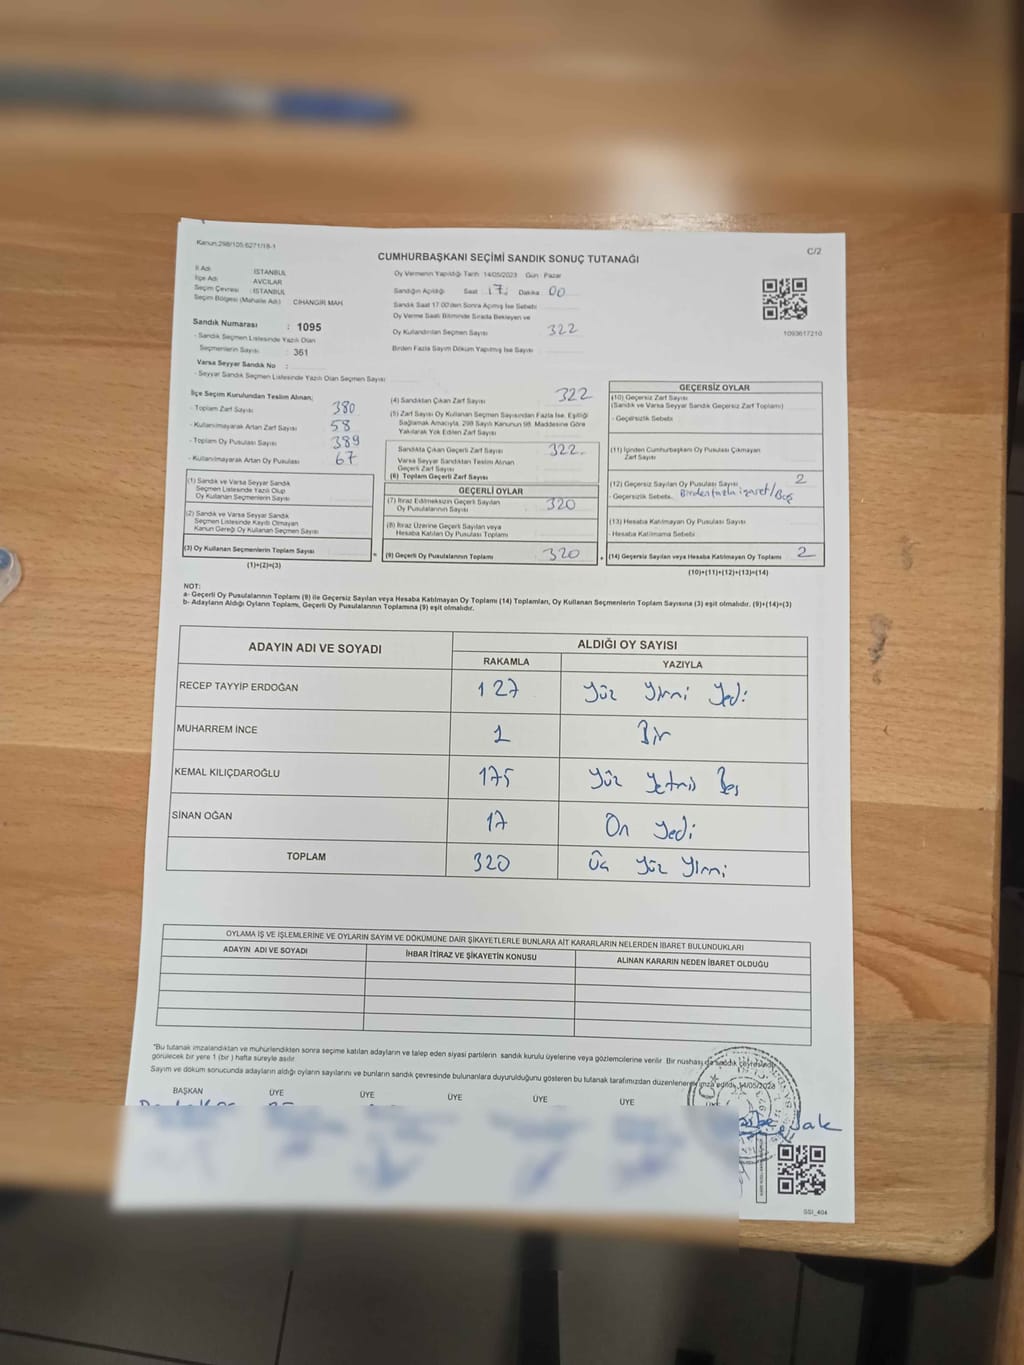 Kanun:298/105,6271/18-1
C/2
CUMHURBAŞKANI SEÇİMİ SANDIK SONUÇ TUTANAĞI
İl Adı : İSTANBUL
İlçe Adı : AVCILAR
Seçim Çevresi : İSTANBUL
Seçim Bölgesi (Mahalle Adı) : CİHANGİR MAH.
Sandık Numarası : 1095
- Sandık Seçmen Listesinde Yazılı Olan
Seçmenlerin Sayısı : 361
Varsa Seyyar Sandık No :
- Seyyar Sandık Seçmen Listesinde Yazılı Olan Seçmen Sayısı
Oy Vermenin Yapıldığı Tarih : 14/05/2023 Gün : Pazar
Sandığın Açıldığı Saat : 17: Dakika : 00
Sandık Saat 17:00'den Sonra Açılmış İse Sebebi :
Oy Verme Saati Bitiminde Sırada Bekleyen ve
Oy Kullandırılan Seçmen Sayısı 322
Birden Fazla Sayım Döküm Yapılmış İse Sayısı :
1093617210
İlçe Seçim Kurulundan Teslim Alınan;
- Toplam Zarf Sayısı 380
- Kullanılmayarak Artan Zarf Sayısı 58
- Toplam Oy Pusulası Sayısı 389
- Kullanılmayarak Artan Oy Pusulası 67
(1) Sandık ve Varsa Seyyar Sandık
Seçmen Listesinde Yazılı Olup
Oy Kullanan Seçmenlerin Sayısı
(2) Sandık ve Varsa Seyyar Sandık
Seçmen Listesinde Kayıtlı Olmayan
Kanun Gereği Oy Kullanan Seçmen Sayısı
(3) Oy Kullanan Seçmenlerin Toplam Sayısı
(1)+(2)=(3)
(4) Sandıktan Çıkan Zarf Sayısı 322
(5) Zarf Sayısı Oy Kullanan Seçmen Sayısından Fazla İse, Eşitliği
Sağlamak Amacıyla, 298 Sayılı Kanunun 98. Maddesine Göre
Yakılarak Yok Edilen Zarf Sayısı
Sandıkta Çıkan Geçerli Zarf Sayısı 322
Varsa Seyyar Sandıktan Teslim Alınan
Geçerli Zarf Sayısı
(6) Toplam Geçerli Zarf Sayısı
GEÇERLİ OYLAR
(7) İtiraz Edilmeksizin Geçerli Sayılan
Oy Pusulalarının Sayısı 320
(8) İtiraz Üzerine Geçerli Sayılan veya
Hesaba Katılan Oy Pusulası Toplamı
= (9) Geçerli Oy Pusulalarının Toplamı 320
GEÇERSİZ OYLAR
(10) Geçersiz Zarf Sayısı
(Sandık ve Varsa Seyyar Sandık Geçersiz Zarf Toplamı)
- Geçersizlik Sebebi
(11) İçinden Cumhurbaşkanı Oy Pusulası Çıkmayan
Zarf Sayısı
(12) Geçersiz Sayılan Oy Pusulası Sayısı 2
- Geçersizlik Sebebi Birden fazla işaret/Boş
(13) Hesaba Katılmayan Oy Pusulası Sayısı
- Hesaba Katılmama Sebebi
+ (14) Geçersiz Sayılan veya Hesaba Katılmayan Oy Toplamı 2
(10)+(11)+(12)+(13)=(14)
NOT:
a- Geçerli Oy Pusulalarının Toplamı (9) ile Geçersiz Sayılan veya Hesaba Katılmayan Oy Toplamı (14) Toplamları, Oy Kullanan Seçmenlerin Toplam Sayısına (3) eşit olmalıdır. (9)+(14)=(3)
b- Adayların Aldığı Oyların Toplamı, Geçerli Oy Pusulalarının Toplamına (9) eşit olmalıdır.
ADAYIN ADI VE SOYADI ALDIĞI OY SAYISI
RAKAMLA YAZIYLA
RECEP TAYYİP ERDOĞAN 127 Yüz Yirmi Yedi
MUHARREM İNCE 1 Bir
KEMAL KILIÇDAROĞLU 175 Yüz Yetmiş Beş
SİNAN OĞAN 17 On Yedi
TOPLAM 320 Üç Yüz Yirmi
OYLAMA İŞ VE İŞLEMLERİNE VE OYLARIN SAYIM VE DÖKÜMÜNE DAİR ŞİKAYETLERLE BUNLARA AİT KARARLARIN NELERDEN İBARET BULUNDUKLARI
ADAYIN ADI VE SOYADI İHBAR İTİRAZ VE ŞİKAYETİN KONUSU ALINAN KARARIN NEDEN İBARET OLDUĞU
"Bu tutanak imzalandıktan ve mühürlendikten sonra seçime katılan adayların ve talep eden siyasi partilerin sandık kurulu üyelerine veya gözlemcilerine verilir. Bir nüshası da sandık çevresinde
görülecek bir yere 1 (bir) hafta süreyle asılır.
Sayım ve döküm sonucunda adayların aldığı oyların sayılarını ve bunların sandık çevresinde bulunanlara duyurulduğunu gösteren bu tutanak tarafımızdan düzenlenerek imza edildi. 14/05/2023
BAŞKAN ÜYE ÜYE ÜYE ÜYE ÜYE
SSI_404